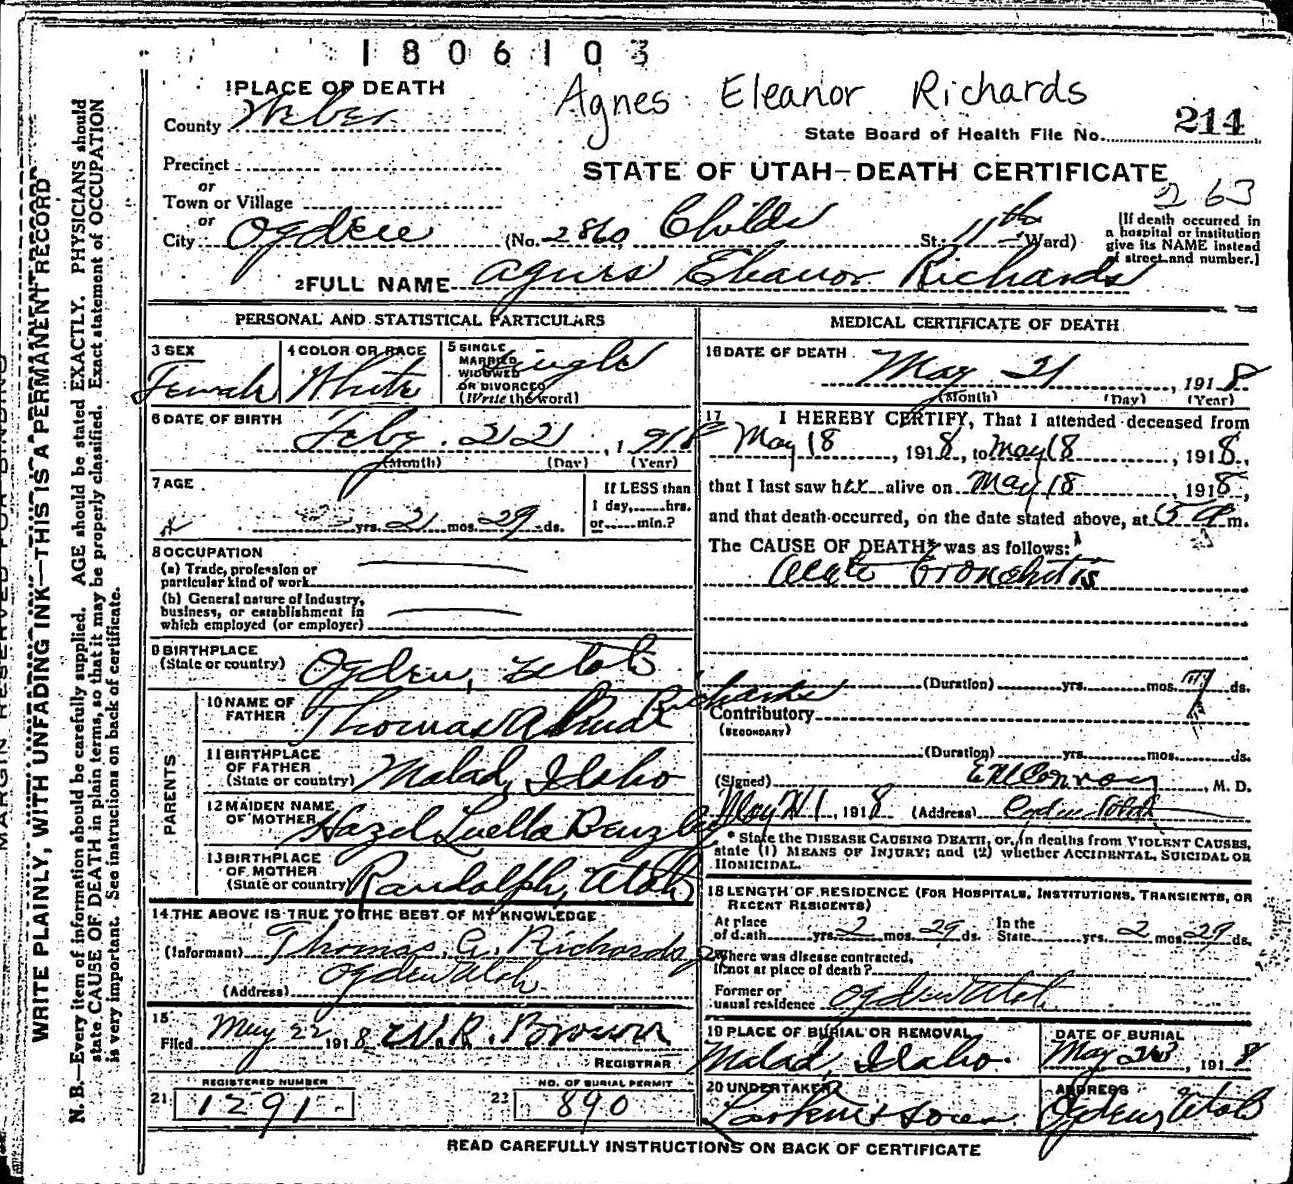 1806103
Agnes Eleanor Richards
1 PLACE OF DEATH
County Weber
State Board of Health File No. 214
Precinct
or
STATE OF UTAH—DEATH CERTIFICATE
Town or Village
263
or
City Ogden (No. 2860 Childs St. 11th Ward)
[If death occurred in
a hospital or institution
give its NAME instead
of street and number.]
2 FULL NAME Agnes Eleanor Richards
PERSONAL AND STATISTICAL PARTICULARS
3 SEX
Female
4 COLOR OR RACE
White
5 SINGLE
MARRIED
WIDOWED
OR DIVORCED
(Write the word)
Single
6 DATE OF BIRTH
Feby. 22, 1918
(Month) (Day) (Year)
7 AGE
yrs. 2 mos. 29 ds.
If LESS than
1 day, hrs.
or min.?
8 OCCUPATION
(a) Trade, profession or
particular kind of work
(b) General nature of Industry,
business, or establishment in
which employed (or employer)
9 BIRTHPLACE
(State or country) Ogden, Utah
PARENTS
10 NAME OF
FATHER Thomas Richards
11 BIRTHPLACE
OF FATHER
(State or country) Malad, Idaho
12 MAIDEN NAME
OF MOTHER Hazel Luella
13 BIRTHPLACE
OF MOTHER
(State or country) Randolph, Utah
14 THE ABOVE IS TRUE TO THE BEST OF MY KNOWLEDGE
(Informant) Thomas A. Richards
(Address) Ogden Utah
15
Filed May 22 1918 W. R. Brown
REGISTRAR
REGISTERED NUMBER
21 1291
NO. OF BURIAL PERMIT
22 890
MEDICAL CERTIFICATE OF DEATH
16 DATE OF DEATH
May 21, 1918
(Month) (Day) (Year)
17 I HEREBY CERTIFY, That I attended deceased from
May 18, 1918, to May 18, 1918,
that I last saw her alive on May 18, 1918,
and that death occurred, on the date stated above, at 5 a m.
The CAUSE OF DEATH* was as follows:
Acute Bronchitis
(Duration) yrs. mos. 7 ds.
Contributory
(SECONDARY)
(Duration) yrs. mos. ds.
(Signed) Conroy, M. D.
May 21, 1918 (Address) Ogden Utah
* State the DISEASE CAUSING DEATH, or, in deaths from VIOLENT CAUSES,
state (1) MEANS OF INJURY; and (2) whether ACCIDENTAL, SUICIDAL OR
HOMICIDAL.
18 LENGTH OF RESIDENCE (FOR HOSPITALS, INSTITUTIONS, TRANSIENTS, OR
RECENT RESIDENTS)
At place
of death yrs. 2 mos. 29 ds.
In the
State yrs. 2 mos. 29 ds.
Where was disease contracted,
if not at place of death?
Former or
usual residence Ogden Utah
19 PLACE OF BURIAL OR REMOVAL
Malad, Idaho.
DATE OF BURIAL
May 23, 1918
20 UNDERTAKER
Larkin & Sons
ADDRESS
Ogden, Utah
READ CAREFULLY INSTRUCTIONS ON BACK OF CERTIFICATE
MARGIN RESERVED FOR BINDING
WRITE PLAINLY, WITH UNFADING INK—THIS IS A PERMANENT RECORD
N. B.—Every item of information should be carefully supplied. AGE should be stated EXACTLY. PHYSICIANS should
state CAUSE OF DEATH in plain terms, so that it may be properly classified. Exact statement of OCCUPATION
is very important. See instructions on back of certificate.